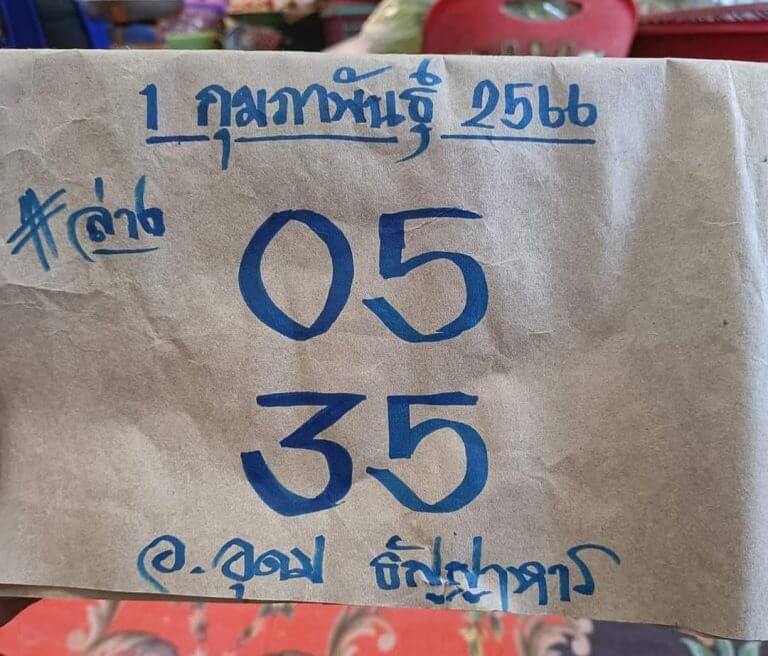 1 กุมภาพันธุ์ 2566
#ล่าง
05
35
อ.อุดม ธัญญาหาร